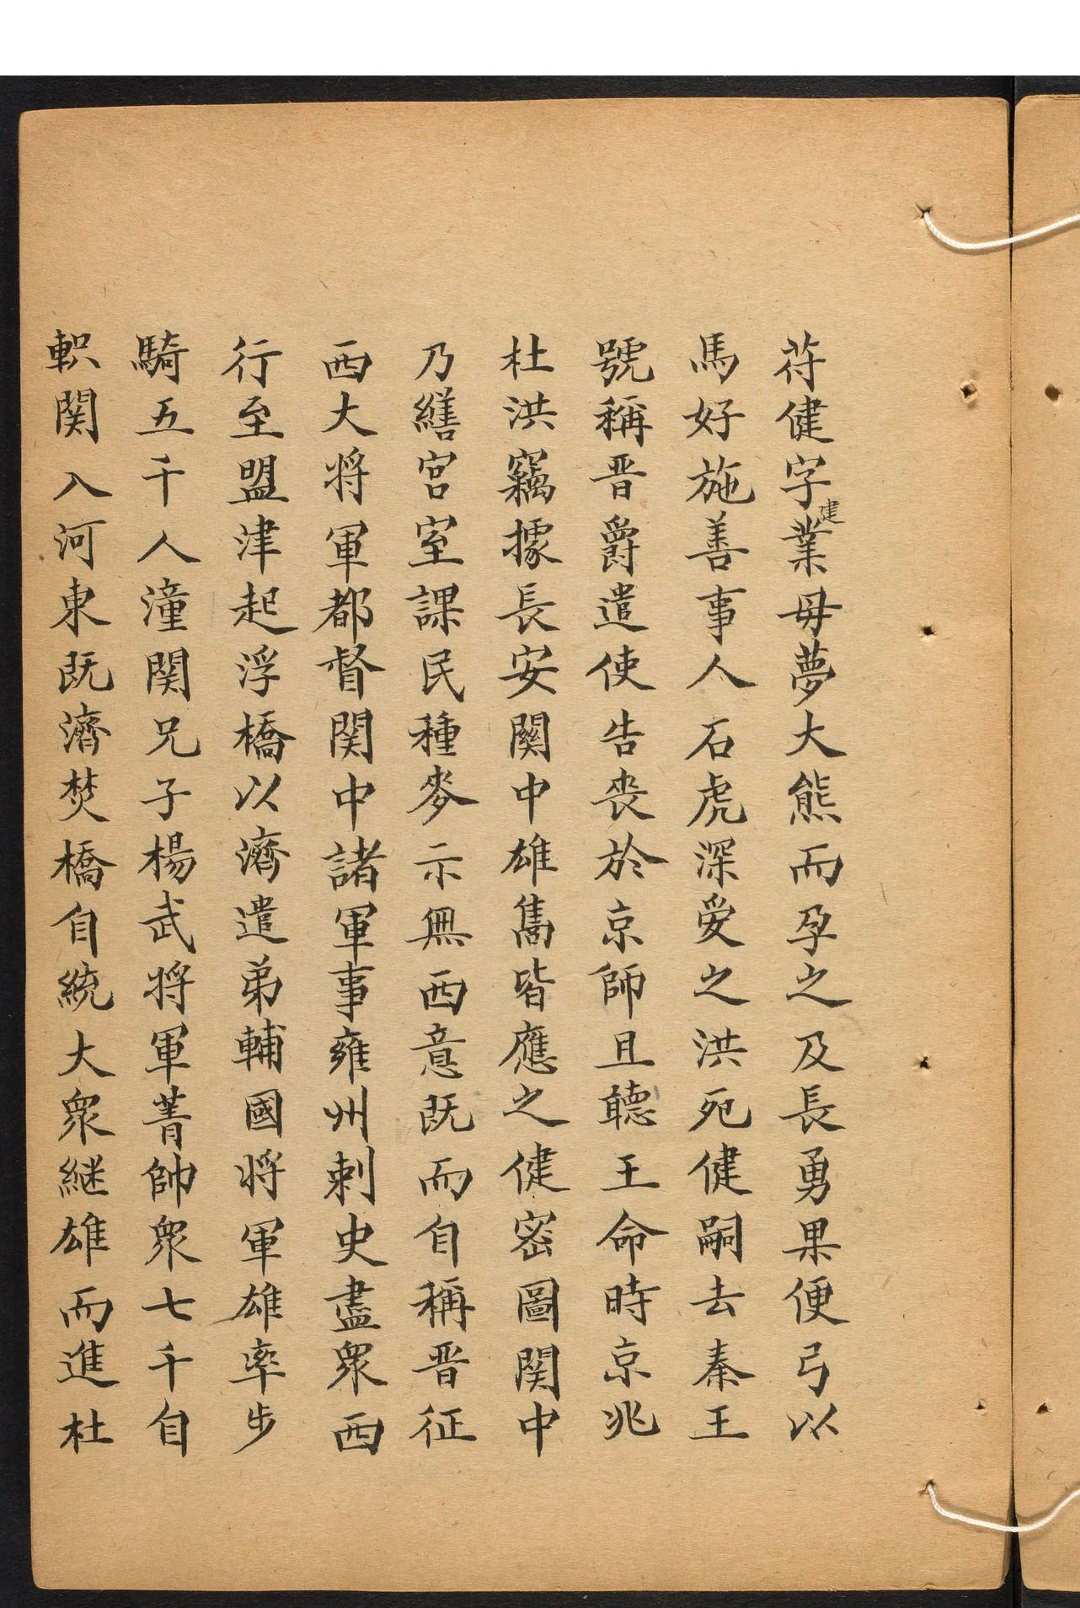 苻健字建業母夢大熊而孕之及長勇果便弓以
馬好施善事人石虎深愛之洪死健嗣去秦王
號稱晋爵遣使告丧於京師且聽王命時京兆
杜洪竊據長安関中雄雋皆應之健密圖関中
乃繕宮室課民種麥示無西意既而自稱晋征
西大将軍都督関中諸軍事雍州刺史盡衆西
行至盟津起浮橋以濟遣弟輔國将軍雄率步
騎五千人潼関兄子楊武将軍菁帥衆七千自
軹関入河東既濟焚橋自統大衆継雄而進杜